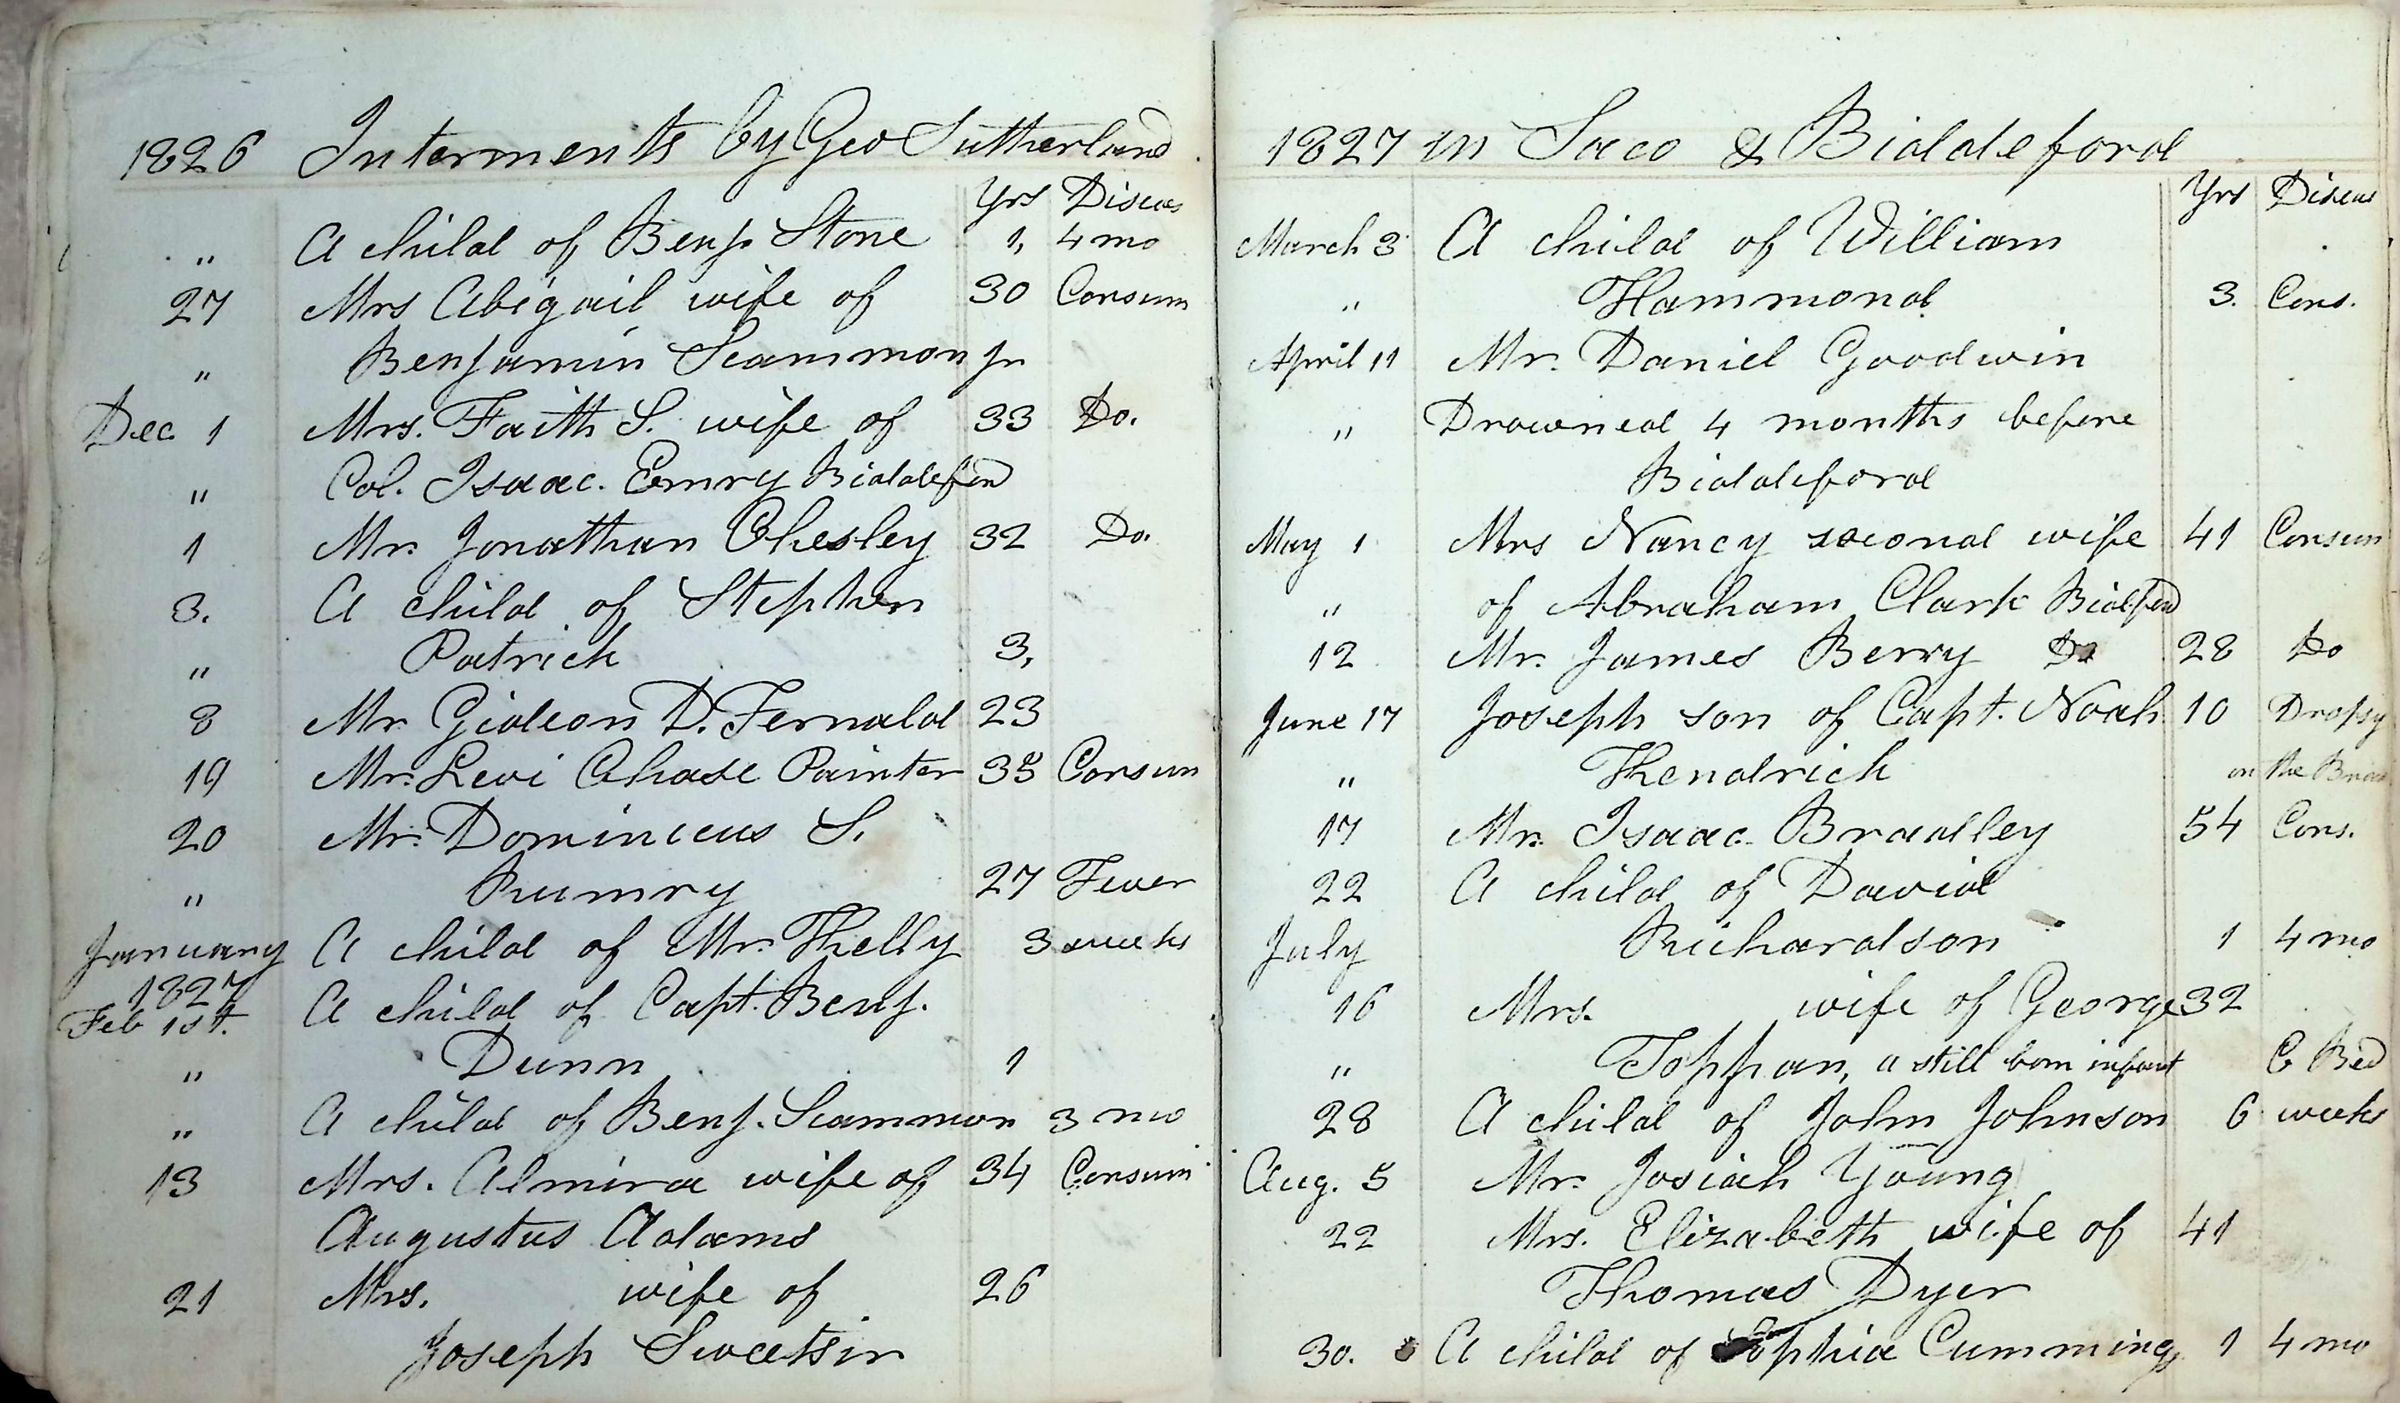 1826 Interments by Geo Sutherland
Yrs Diseas
" A child of Benj. Stone 1, 4 mo
27 Mrs Abigail wife of 30 Consum
" Benjamin Scammon Jr
Dec. 1 Mrs. Faith S. wife of 33 Do.
" Col. Isaac. Emry Biddeford
1 Mr. Jonathan Chesley 32 Do.
3. A child of Stephen
" Patrick 3,
8 Mr Gideon D. Fernald 23
19 Mr. Levi Chase Painter 35 Consum
20 Mr. Dominicus S.
" Rumry 27 Fever
January A child of Mr. Khelly 3 weeks
1827
Feb 1st. A child of Capt. Benj.
" Dunn 1
" A child of Benj. Scammon 3 mo
13 Mrs. Almira wife of 34 Consum
Augustus Adams
21 Mrs. wife of 26
Joseph Sweetsir
1827 in Saco & Biddeford
Yrs Diseas
March 3 A child of William
" Hammond 3. Cons.
April 11 Mr. Daniel Goodwin
" Drowned 4 months before
Biddeford
May 1 Mrs Nancy second wife 41 Consum
" of Abraham Clark Bidford
12 Mr. James Berry Do 28 Do
June 17 Joseph son of Capt. Noah 10 Dropsy
" Khendrick on the Brain
17 Mr. Isaac Bradley 54 Cons.
22 A child of David
July Richardson 1 4 mo
16 Mrs. wife of George 32
" Toppan, a still born infant C Bed
28 A child of John Johnson 6 weeks
Aug. 5 Mr. Josiah Young
22 Mrs. Elizabeth wife of 41
Thomas Dyer
30. A child of Sophia Cummings 1 4 mo